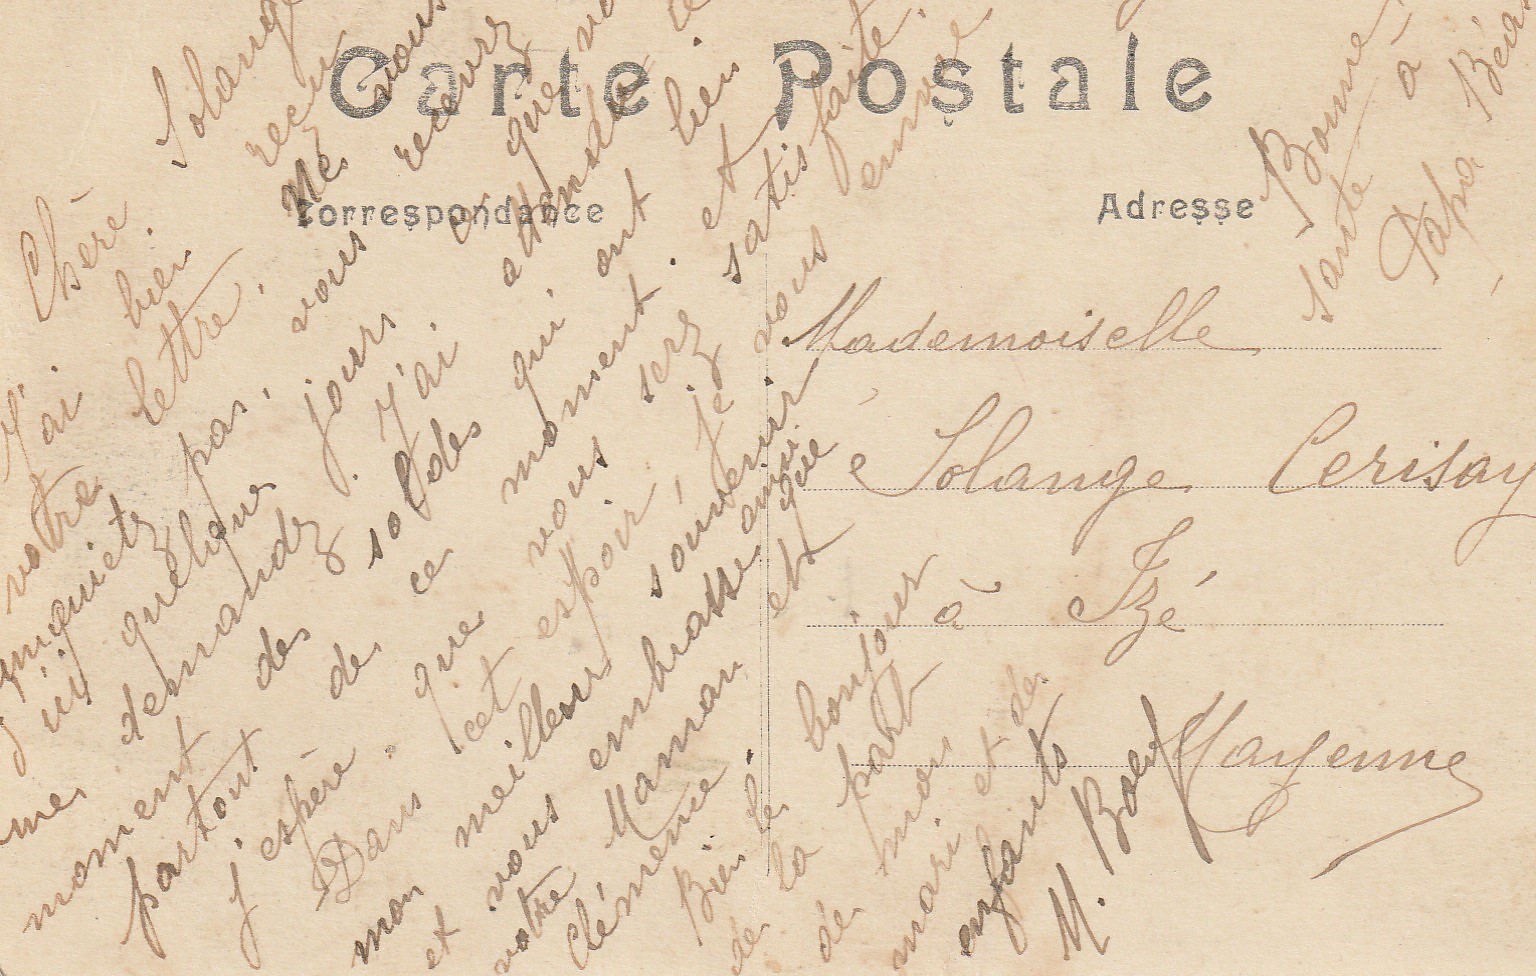 Carte Postale
Correspondance
Adresse
Chère Solange
J'ai bien reçu
votre lettre. Ne vous
inquietez pas, vous recevrez
d'ici quelques jours ce que
me demandez. J'ai attendu ce
moment des soldes qui ont lieu
partout de ce moment. et
j'espère que vous serez satisfaite.
Dans cet espoir, je vous envoie
mon meilleur souvenir
et vous embrasse ainsi que
votre Maman et
Clémence.
Bien le bonjour
de la part
de mon
mari et de
enfants
M.
Bonne
santé à
Papa
Mademoiselle
Solange Cerisay
à Izé
Mayenne